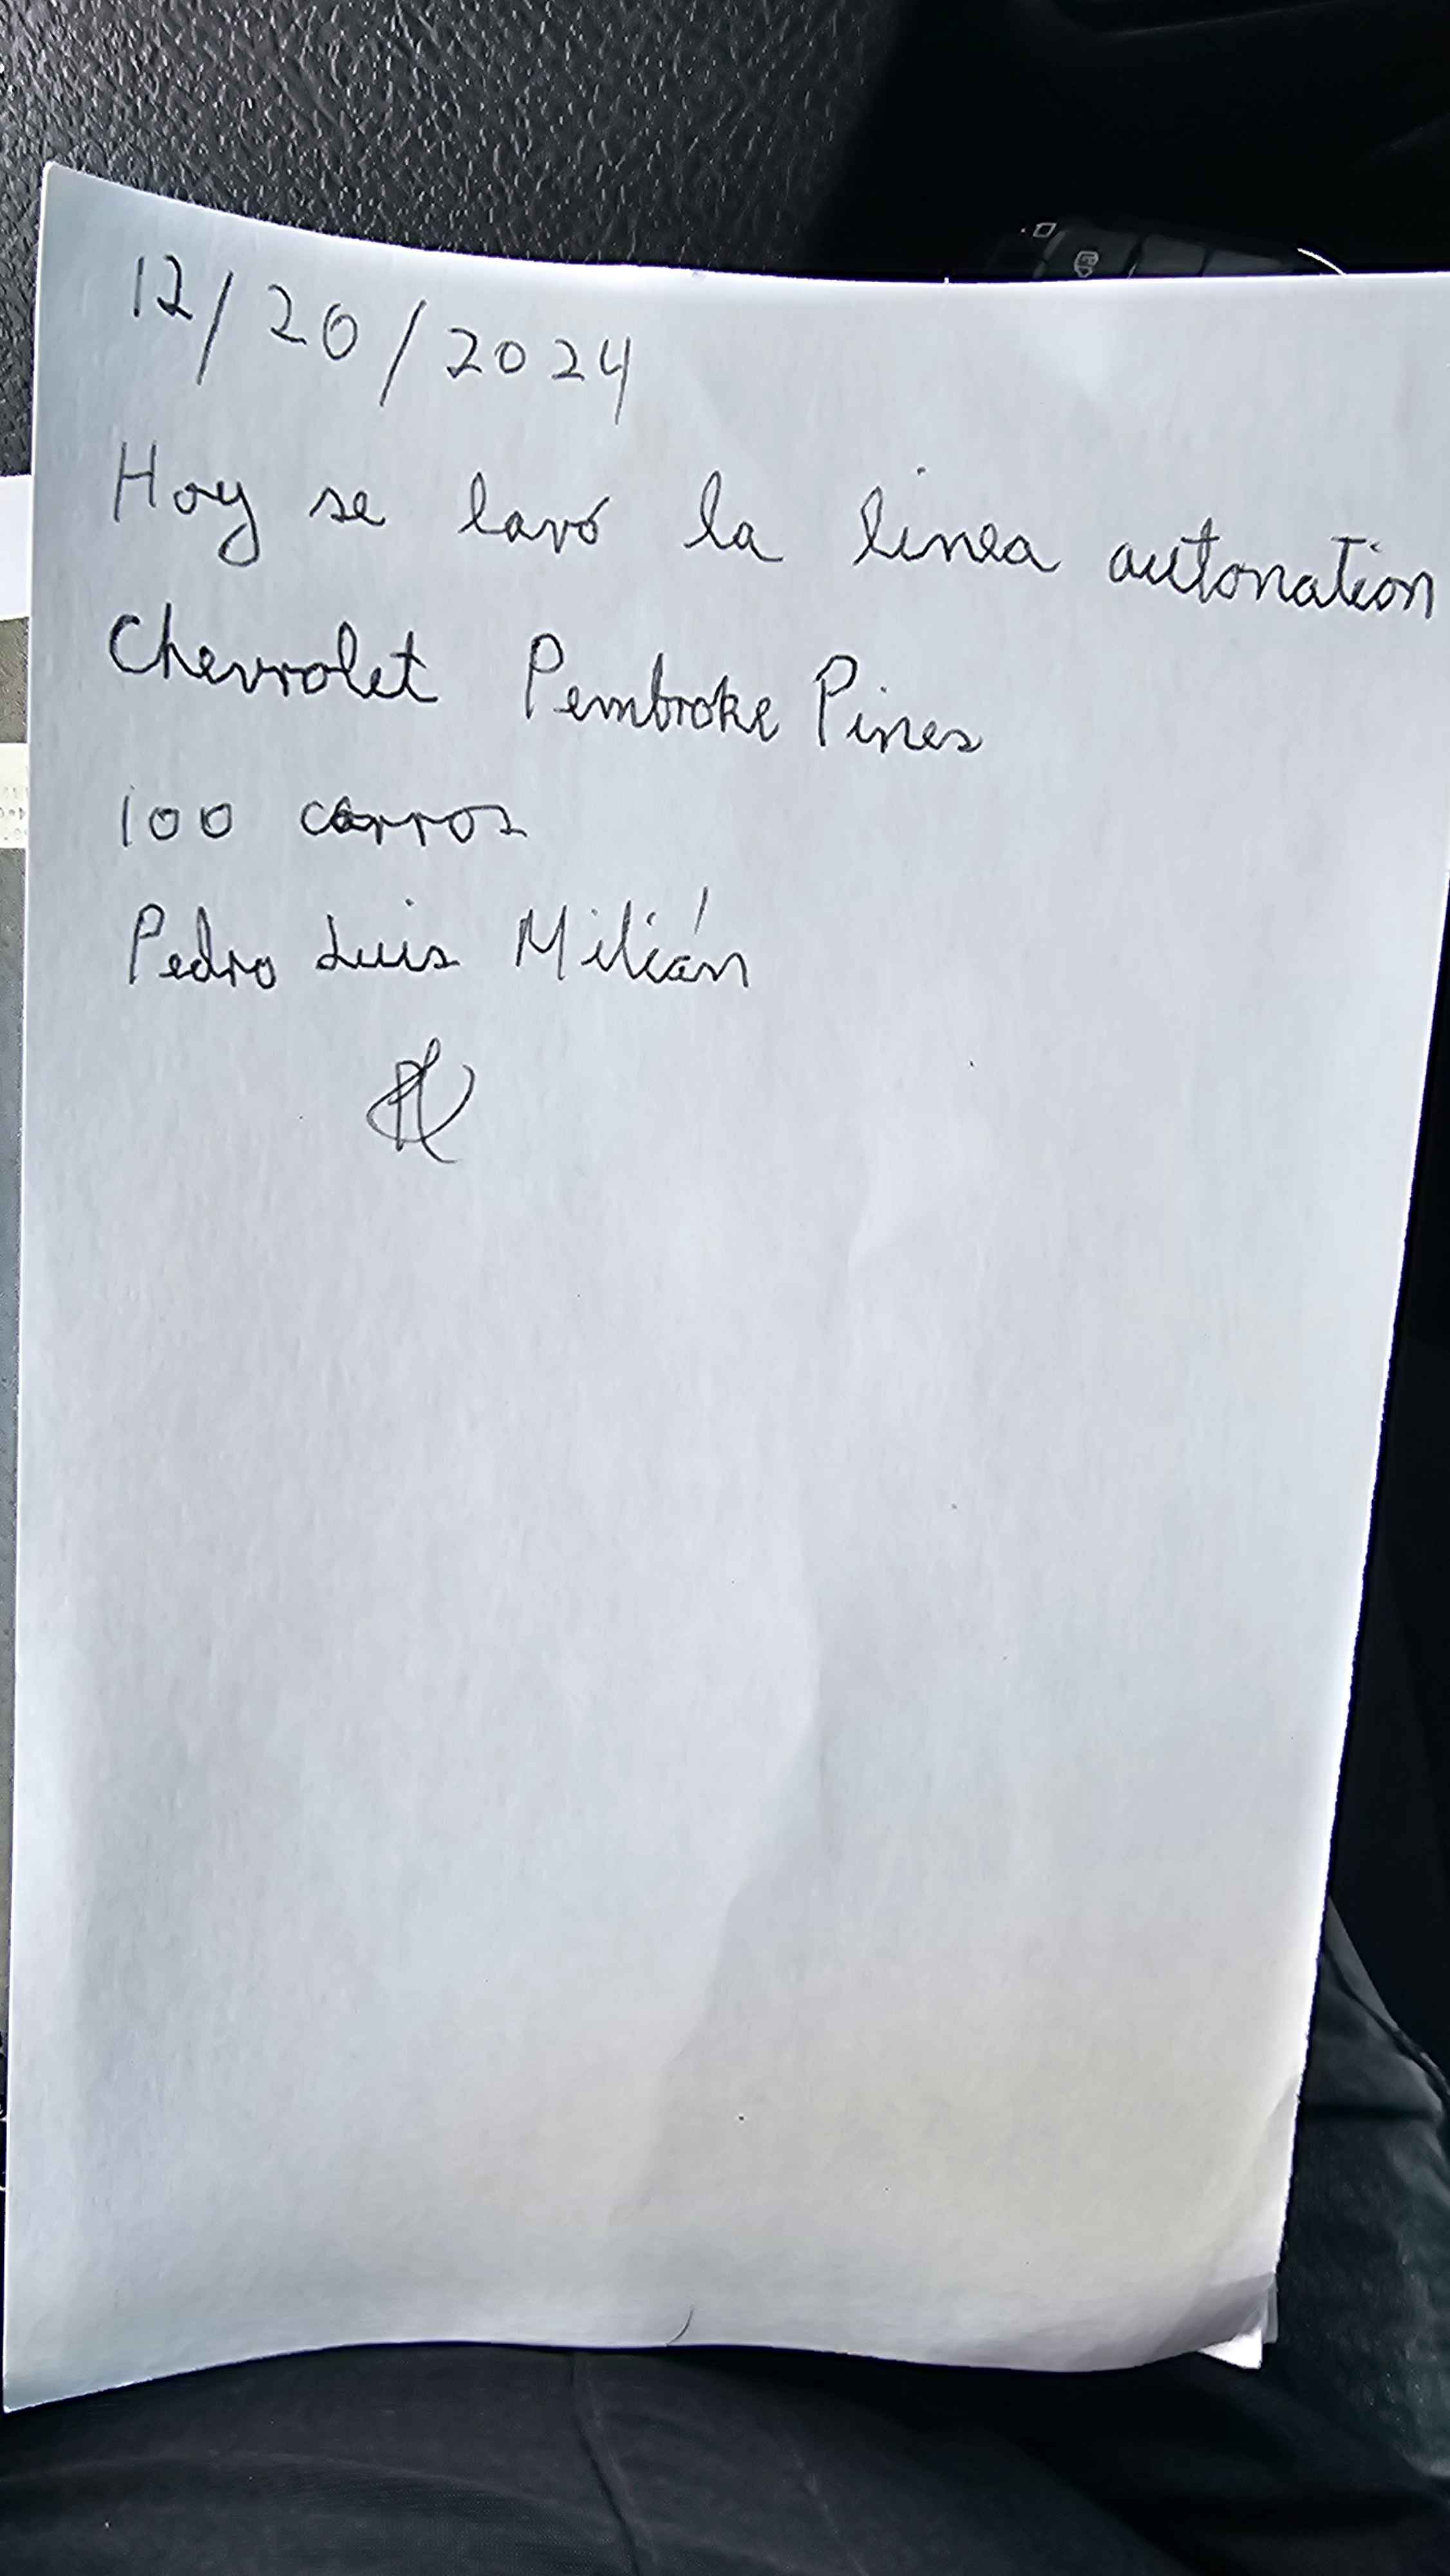 12/20/2024
Hoy se lavó la linea autonation
Chevrolet Pembroke Pines
100 carros
Pedro Luis Milián